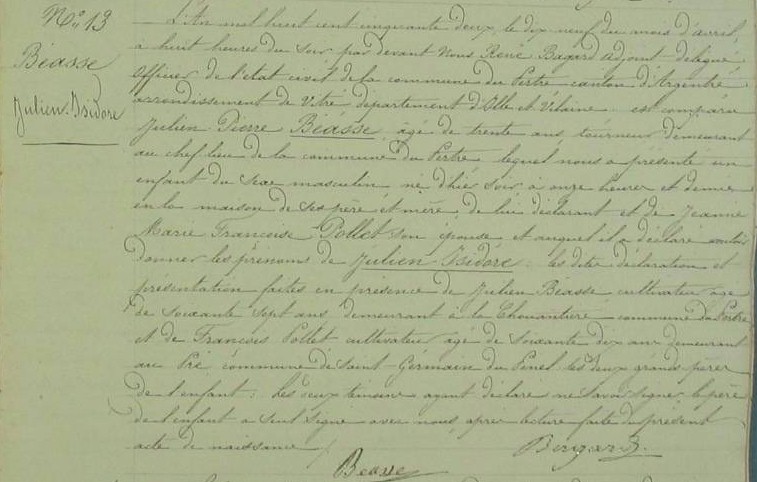 N° 13
Béasse
Julien-Isidore
L'An mil huit cent cinquante deux, le dix neuf du mois d'avril,
a huit heures du soir, par devant Nous René Bagard adjoint délégué,
officier de l'état civil de la commune du Pertre canton d'Argentré
arrondissement de Vitré, département d'Ille et Vilaine est comparu
Julien Pierre Béasse, âgé de trente ans, tourneur, demeurant
au chef lieu de la commune du Pertre lequel nous a présenté un
enfant du sexe masculin né d'hier soir, à onze heures et demie
en la maison de ses père et mère, de lui déclarant et de Jeanne
Marie Françoise Pottet son épouse et auquel il a déclaré vouloir
donner les prénoms de Julien-Isidore. les dites déclaration et
présentation faites en présence de Julien Béasse cultivateur âgé
de soixante sept ans, demeurant à la Chouantière commune du Pertre
et de François Pottet cultivateur âgé de soixante dix ans demeurant
au Pré commune de Saint-Germain du Pinel les deux grands pères
de l'enfant. Les deux témoins ayant déclaré ne savoir signer, le père
de l'enfant a seul signé avec nous, après lecture faite du présent
acte de naissance.
Béasse